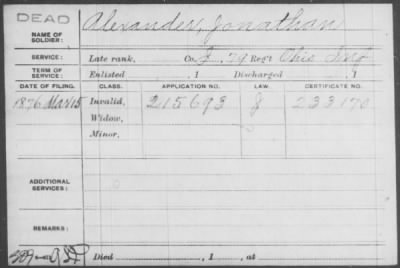 DEAD
NAME OF SOLDIER: Alexander, Jonathan
SERVICE: Late rank, Co. J, 79 Reg't Ohio Inf
TERM OF SERVICE: Enlisted , 1 Discharged , 1
DATE OF FILING. CLASS. APPLICATION NO. LAW. CERTIFICATE NO.
1876 Mar 15 Invalid, 215693 J 233170
Widow,
Minor,
ADDITIONAL SERVICES:
REMARKS:
Died , 1 , at